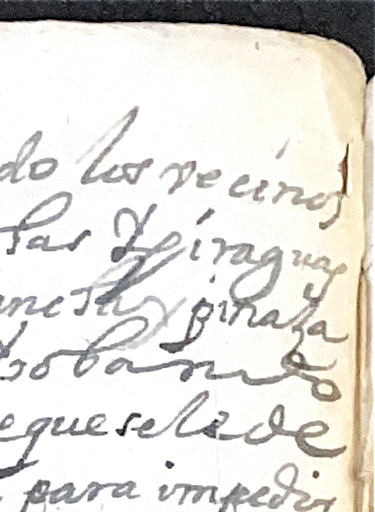 do los vecinos
tas y piraguas
pinaza
robando
e que se le de
para impedir